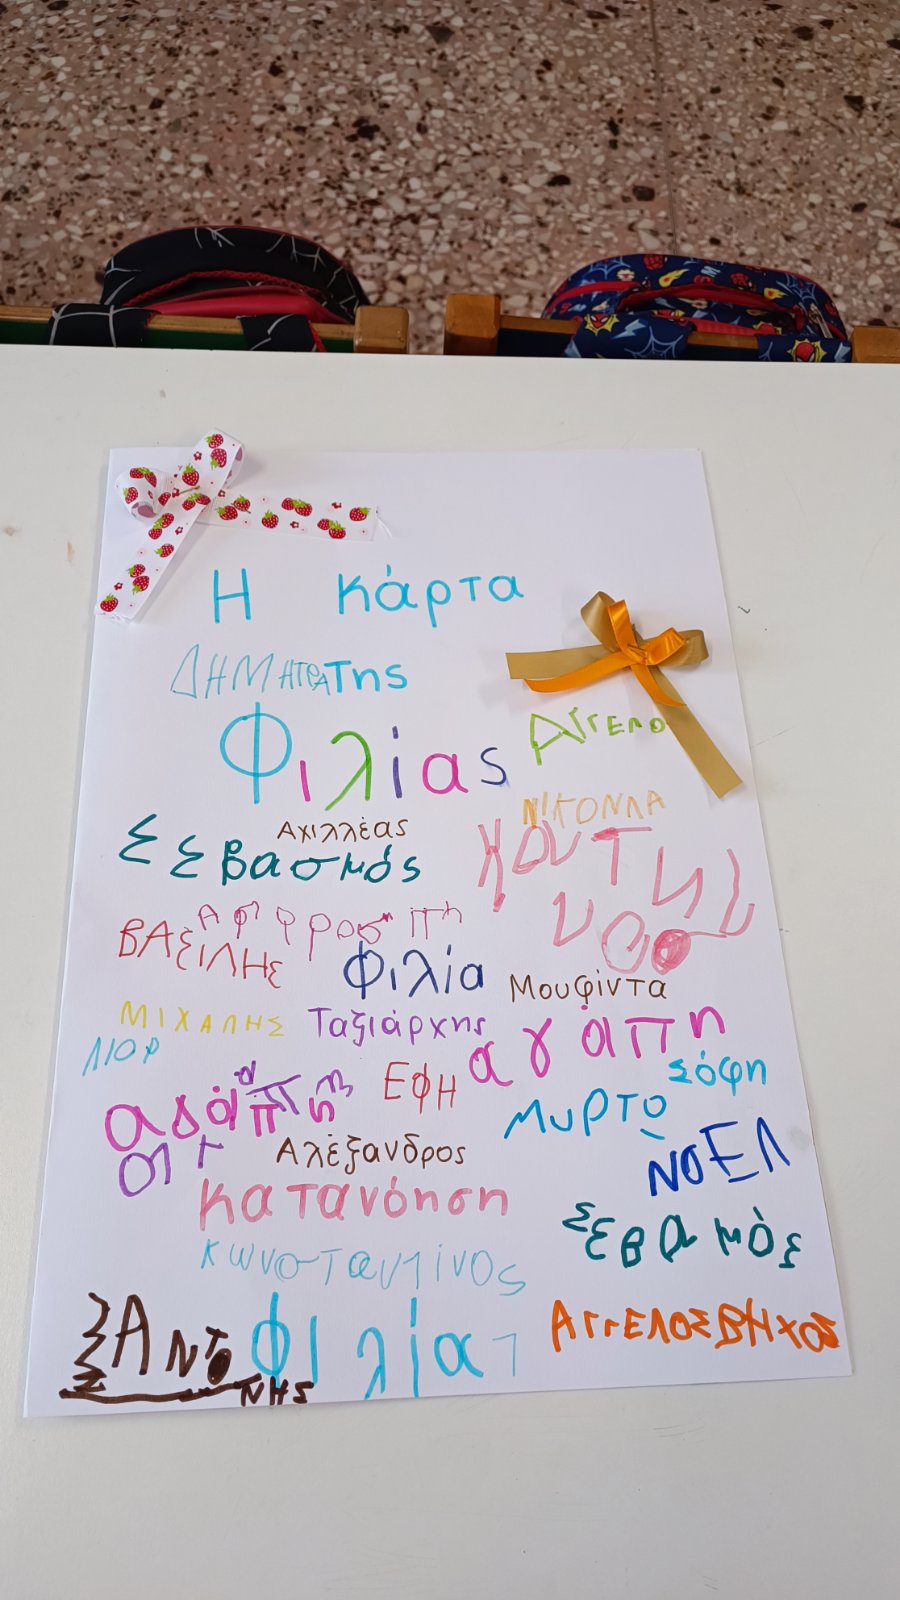 Η κάρτα
ΔΗΜΗΤΡΑ της
Φιλίας
ΑΓΓΕΛΟ
ΝΙΚΟΛΛΑ
Αχιλλέας
Σεβασμός
Αφροπη
ΒΑΣΙΛΗΣ
Φιλία
Μουφίντα
ΜΙΧΑΛΗΣ Ταξιάρχης
αγάπη
ΛΙΟΡ
ΕΦΗ
Σόφη
αγάπη
Μυρτο
Αλέξανδρος
ΝΟΕΛ
κατανόηση
Σεβαμός
Κωνσταντίνος
ΑΝΤΟ
ΝΗΣ
Φιλία
ΑΓΓΕΛΟΣ ΒΗΧΟΣ